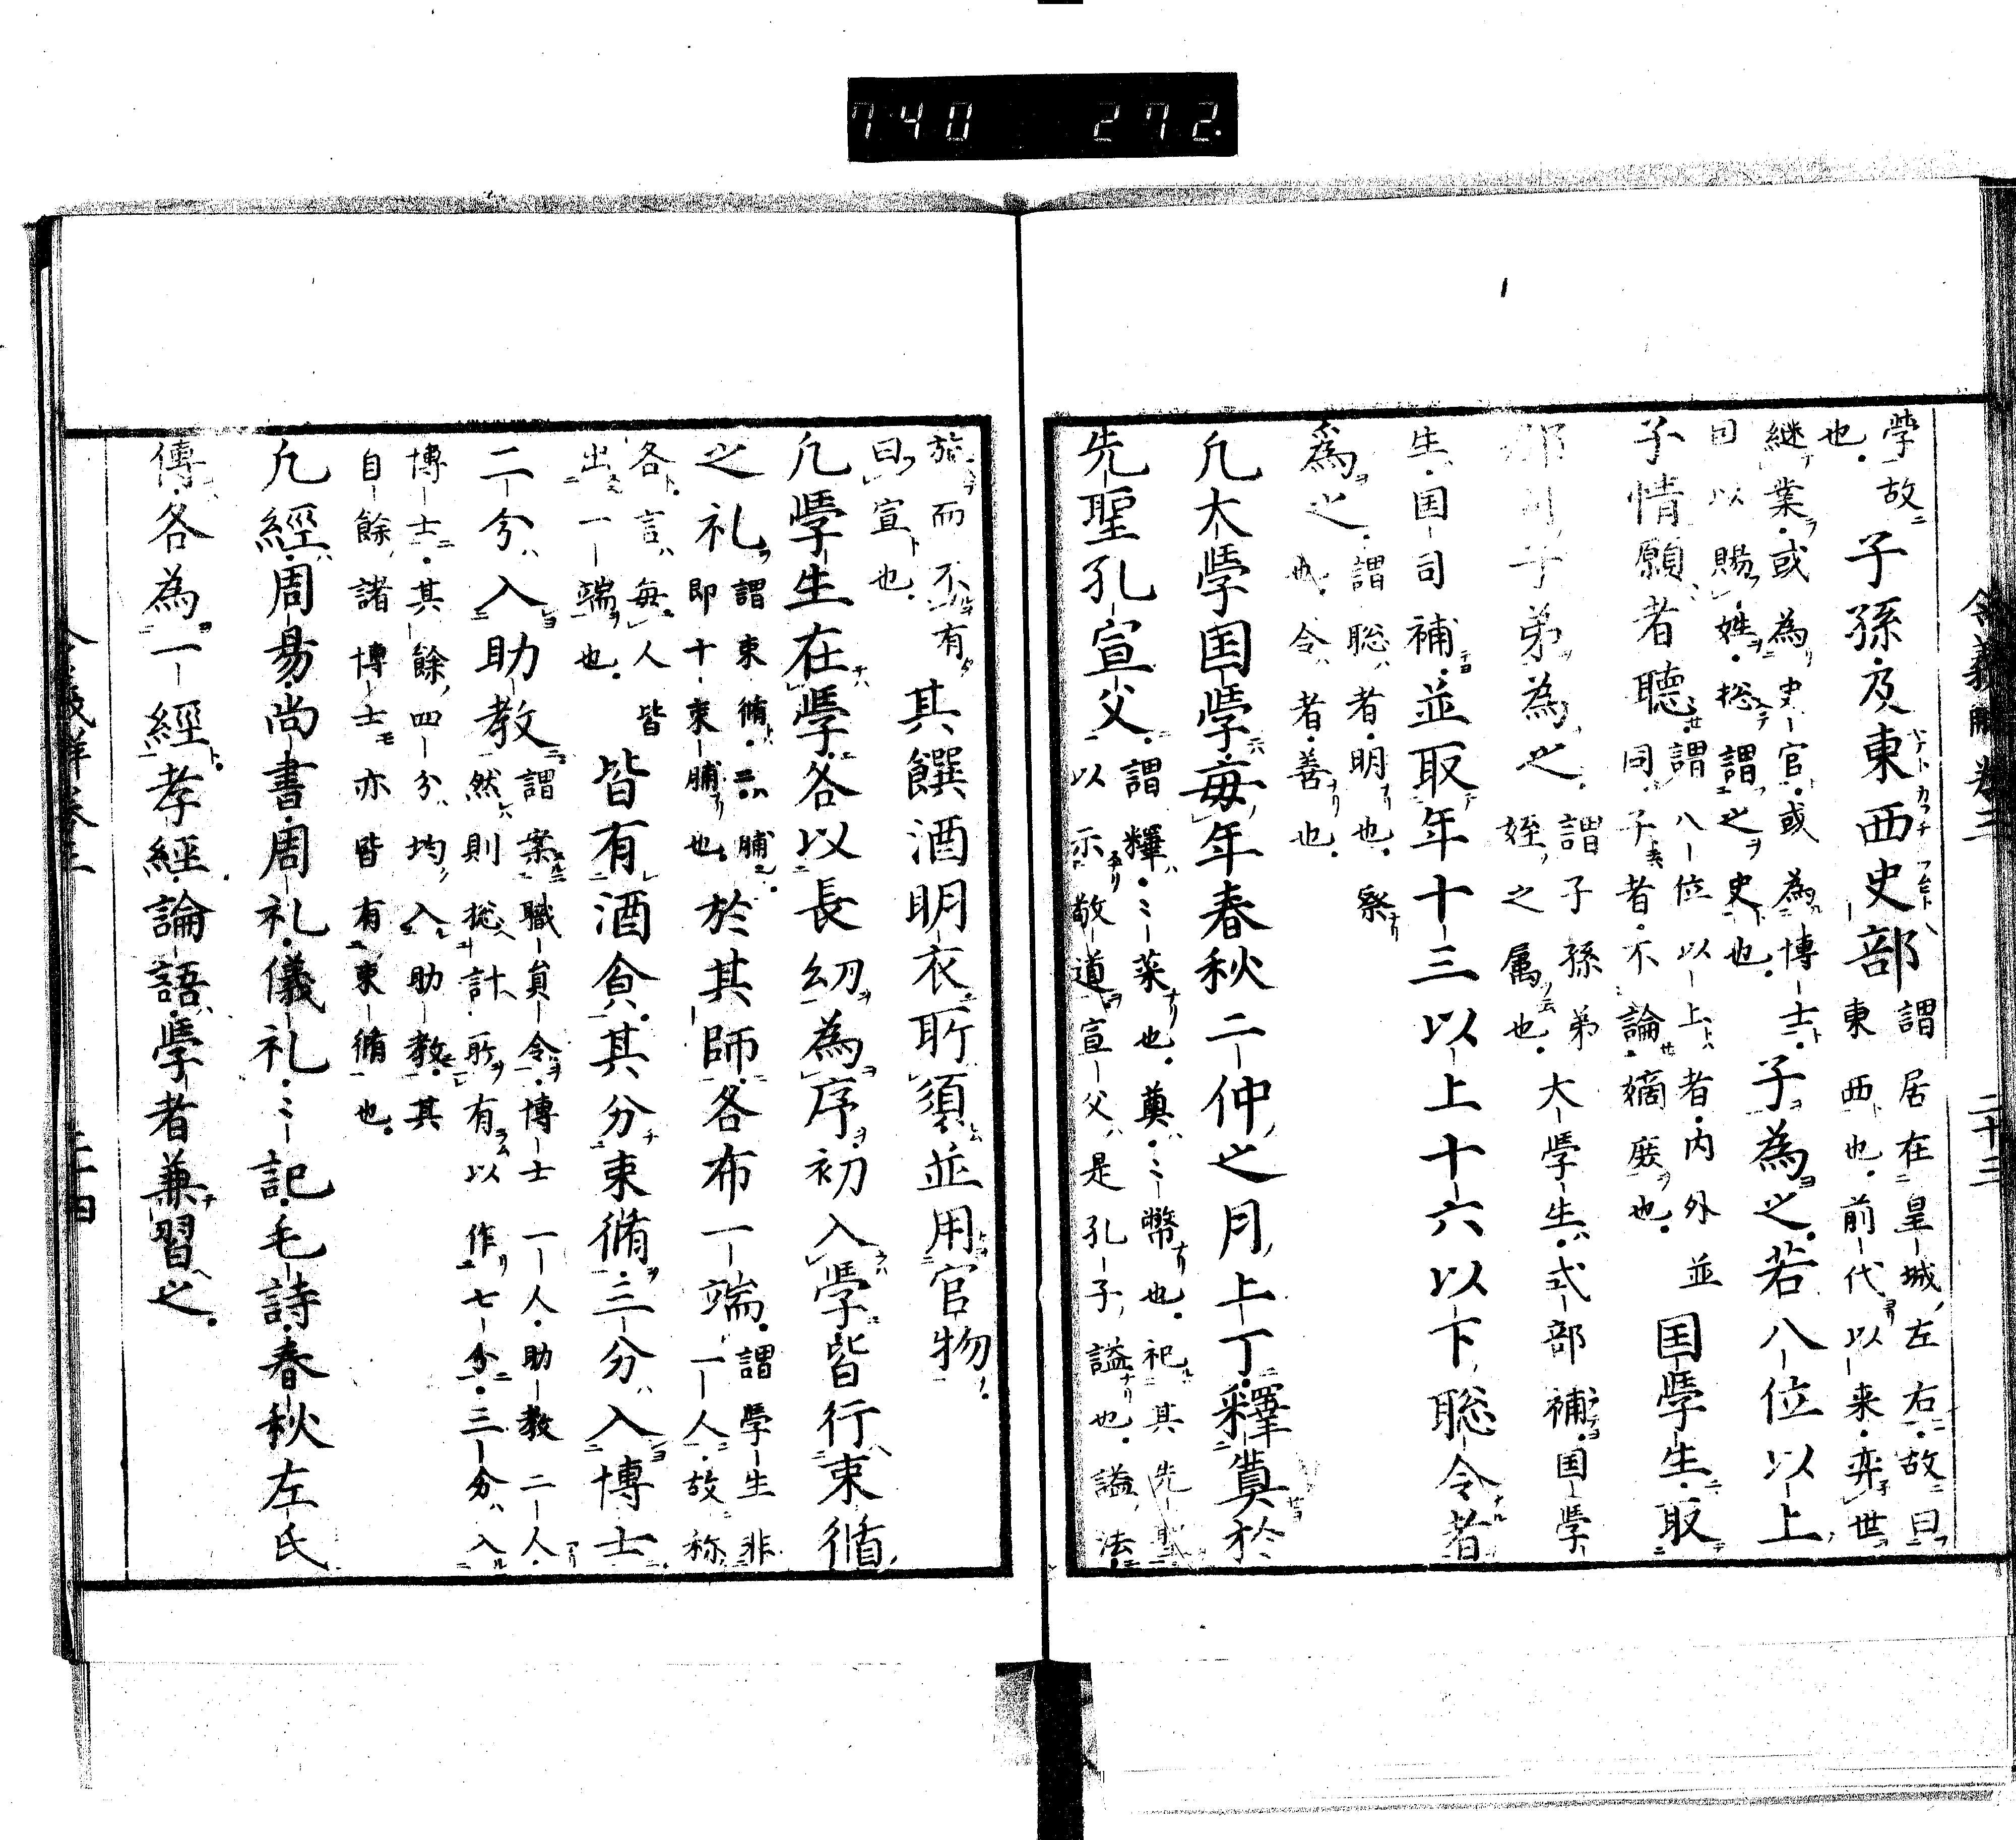 740 272.
令義解卷三 二十三
學故
也。 子孫及東西史部 謂居在皇城左右。故曰
東西也。前代以来。弈世
継業。或為史官。或為博士。
曰以賜姓。捴謂之史也。 子為之。若八位以上
子情願者聴。 謂八位以上者。内外並
同。子者。不論嫡庶也。 国學生。取
郡司子弟為之。 謂子孫弟
姪之属也。 大學生。式部補。国學
生。国司補。並取年十三以上十六以下。聡令者
為之。 謂聡者。明也。察
也。令者。善也。
凡大學国學。毎年春秋二仲之月上丁。釋奠於
先聖孔宣父。 謂釋。〻菜也。奠。〻幣也。祀其先聖。
以示敬道。宣父是孔子謚也。謚法
施而不有
曰宣也。 其饌酒明衣所須。並用官物。
凡學生在學。各以長幼為序。初入學。皆行束脩
之礼。 謂束脩。〻脯。
即十束脯也。 於其師。各布一端。 謂學生非
一人。故称
各。言毎人皆
出一端也。 皆有酒食。其分束脩。三分入博士
二分入助教。 謂案職員令。博士一人。助教二人。
然則捴計所有。以作七分。三分入
博士。其餘四分。均入助教。其
自餘諸博士亦皆有束脩也。
凡經。周易。尚書。周礼。儀礼。〻記。毛詩。春秋左氏
傳。各為一經。孝經。論語。學者兼習之。